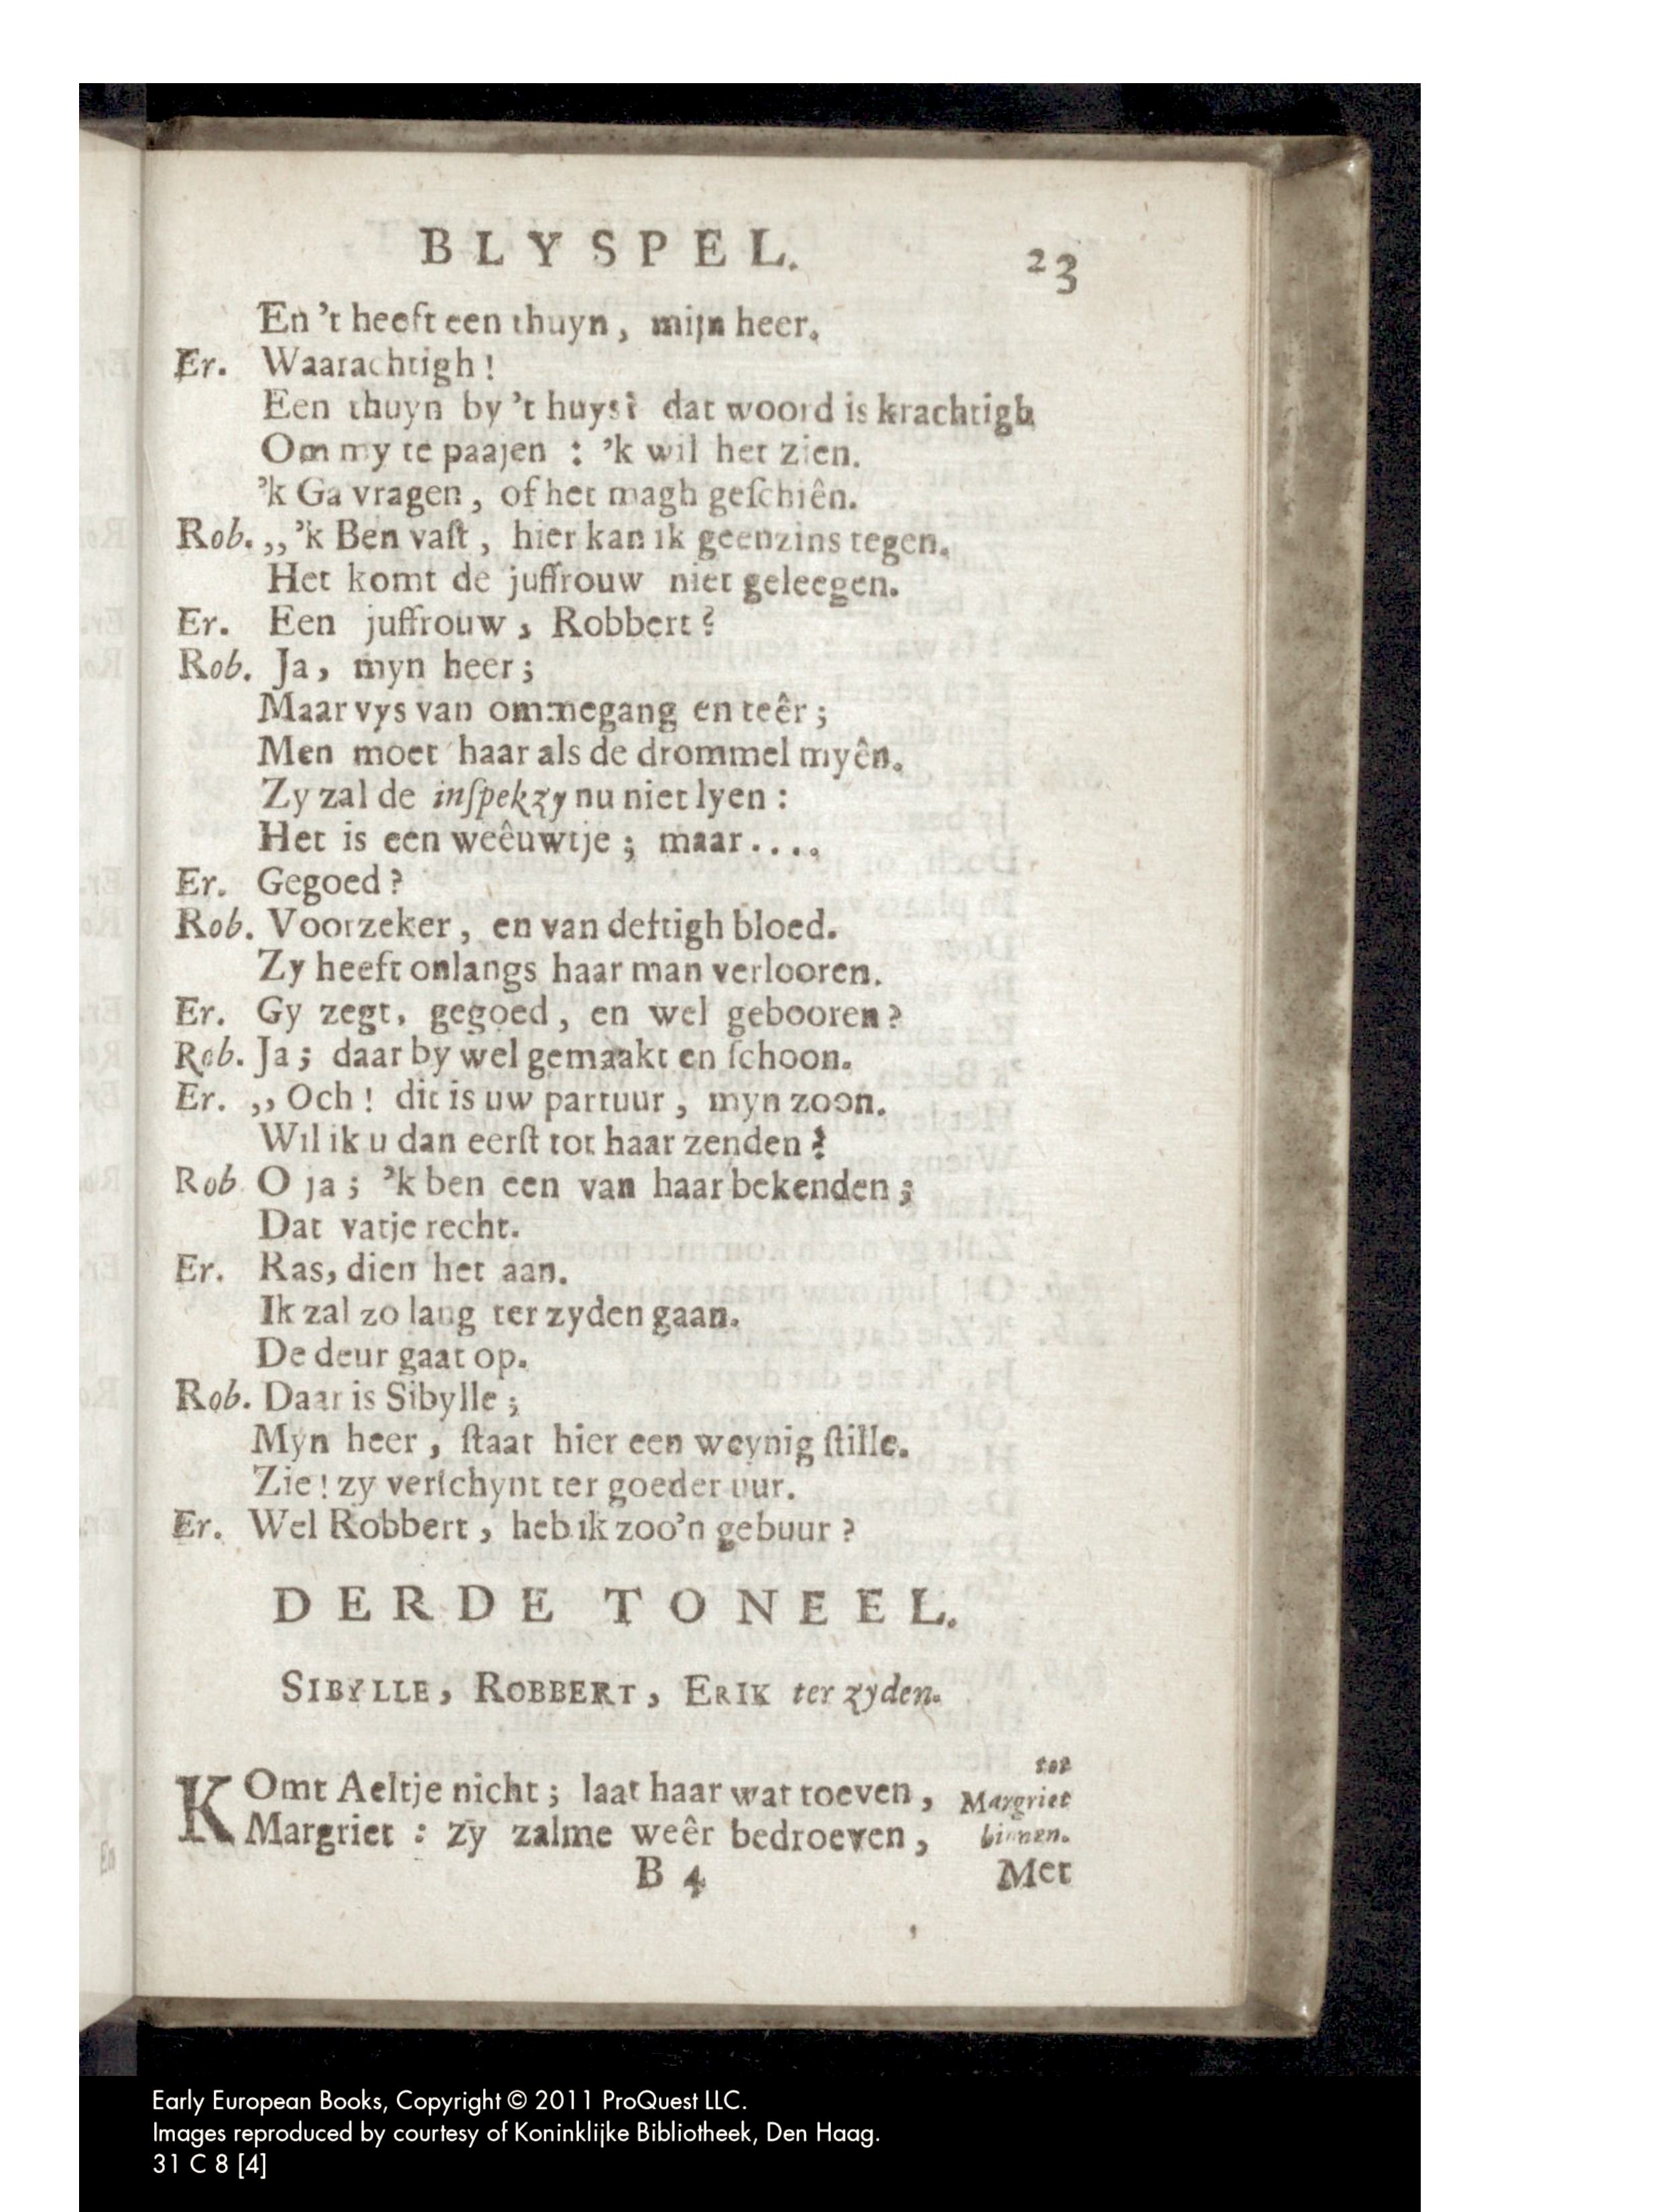 BLYSPEL. 23
En 't heeft een thuyn, mijn heer.
Er. Waarachtigh!
Een thuyn by 't huys? dat woord is krachtigh
Om my te paajen : 'k wil het zien.
'k Ga vragen, of het magh geſchiên.
Rob. ,,'k Ben vaſt, hier kan ik geenzins tegen.
Het komt de juffrouw niet geleegen.
Er. Een juffrouw, Robbert?
Rob. Ja, myn heer;
Maar vys van ommegang en teêr;
Men moet haar als de drommel myên.
Zy zal de inſpekzy nu niet lyen :
Het is een weêuwtje; maar....
Er. Gegoed?
Rob. Voorzeker, en van deftigh bloed.
Zy heeft onlangs haar man verlooren.
Er. Gy zegt, gegoed, en wel gebooren?
Rob. Ja; daar by wel gemaakt en ſchoon.
Er. ,, Och! dit is uw partuur, myn zoon.
Wil ik u dan eerſt tot haar zenden?
Rob. O ja; 'k ben een van haar bekenden;
Dat vatje recht.
Er. Ras, dien het aan.
Ik zal zo lang ter zyden gaan.
De deur gaat op.
Rob. Daar is Sibylle;
Myn heer, ſtaat hier een weynig ſtille.
Zie! zy verſchynt ter goeder uur.
Er. Wel Robbert, heb ik zoo'n gebuur?
DERDE TONEEL.
SIBYLLE, ROBBERT, ERIK ter zyden.
KOmt Aeltje nicht; laat haar wat toeven, tot Margriet
Margriet : zy zalme weêr bedroeven, binnen.
B 4 Met
Early European Books, Copyright © 2011 ProQuest LLC.
Images reproduced by courtesy of Koninklijke Bibliotheek, Den Haag.
31 C 8 [4]